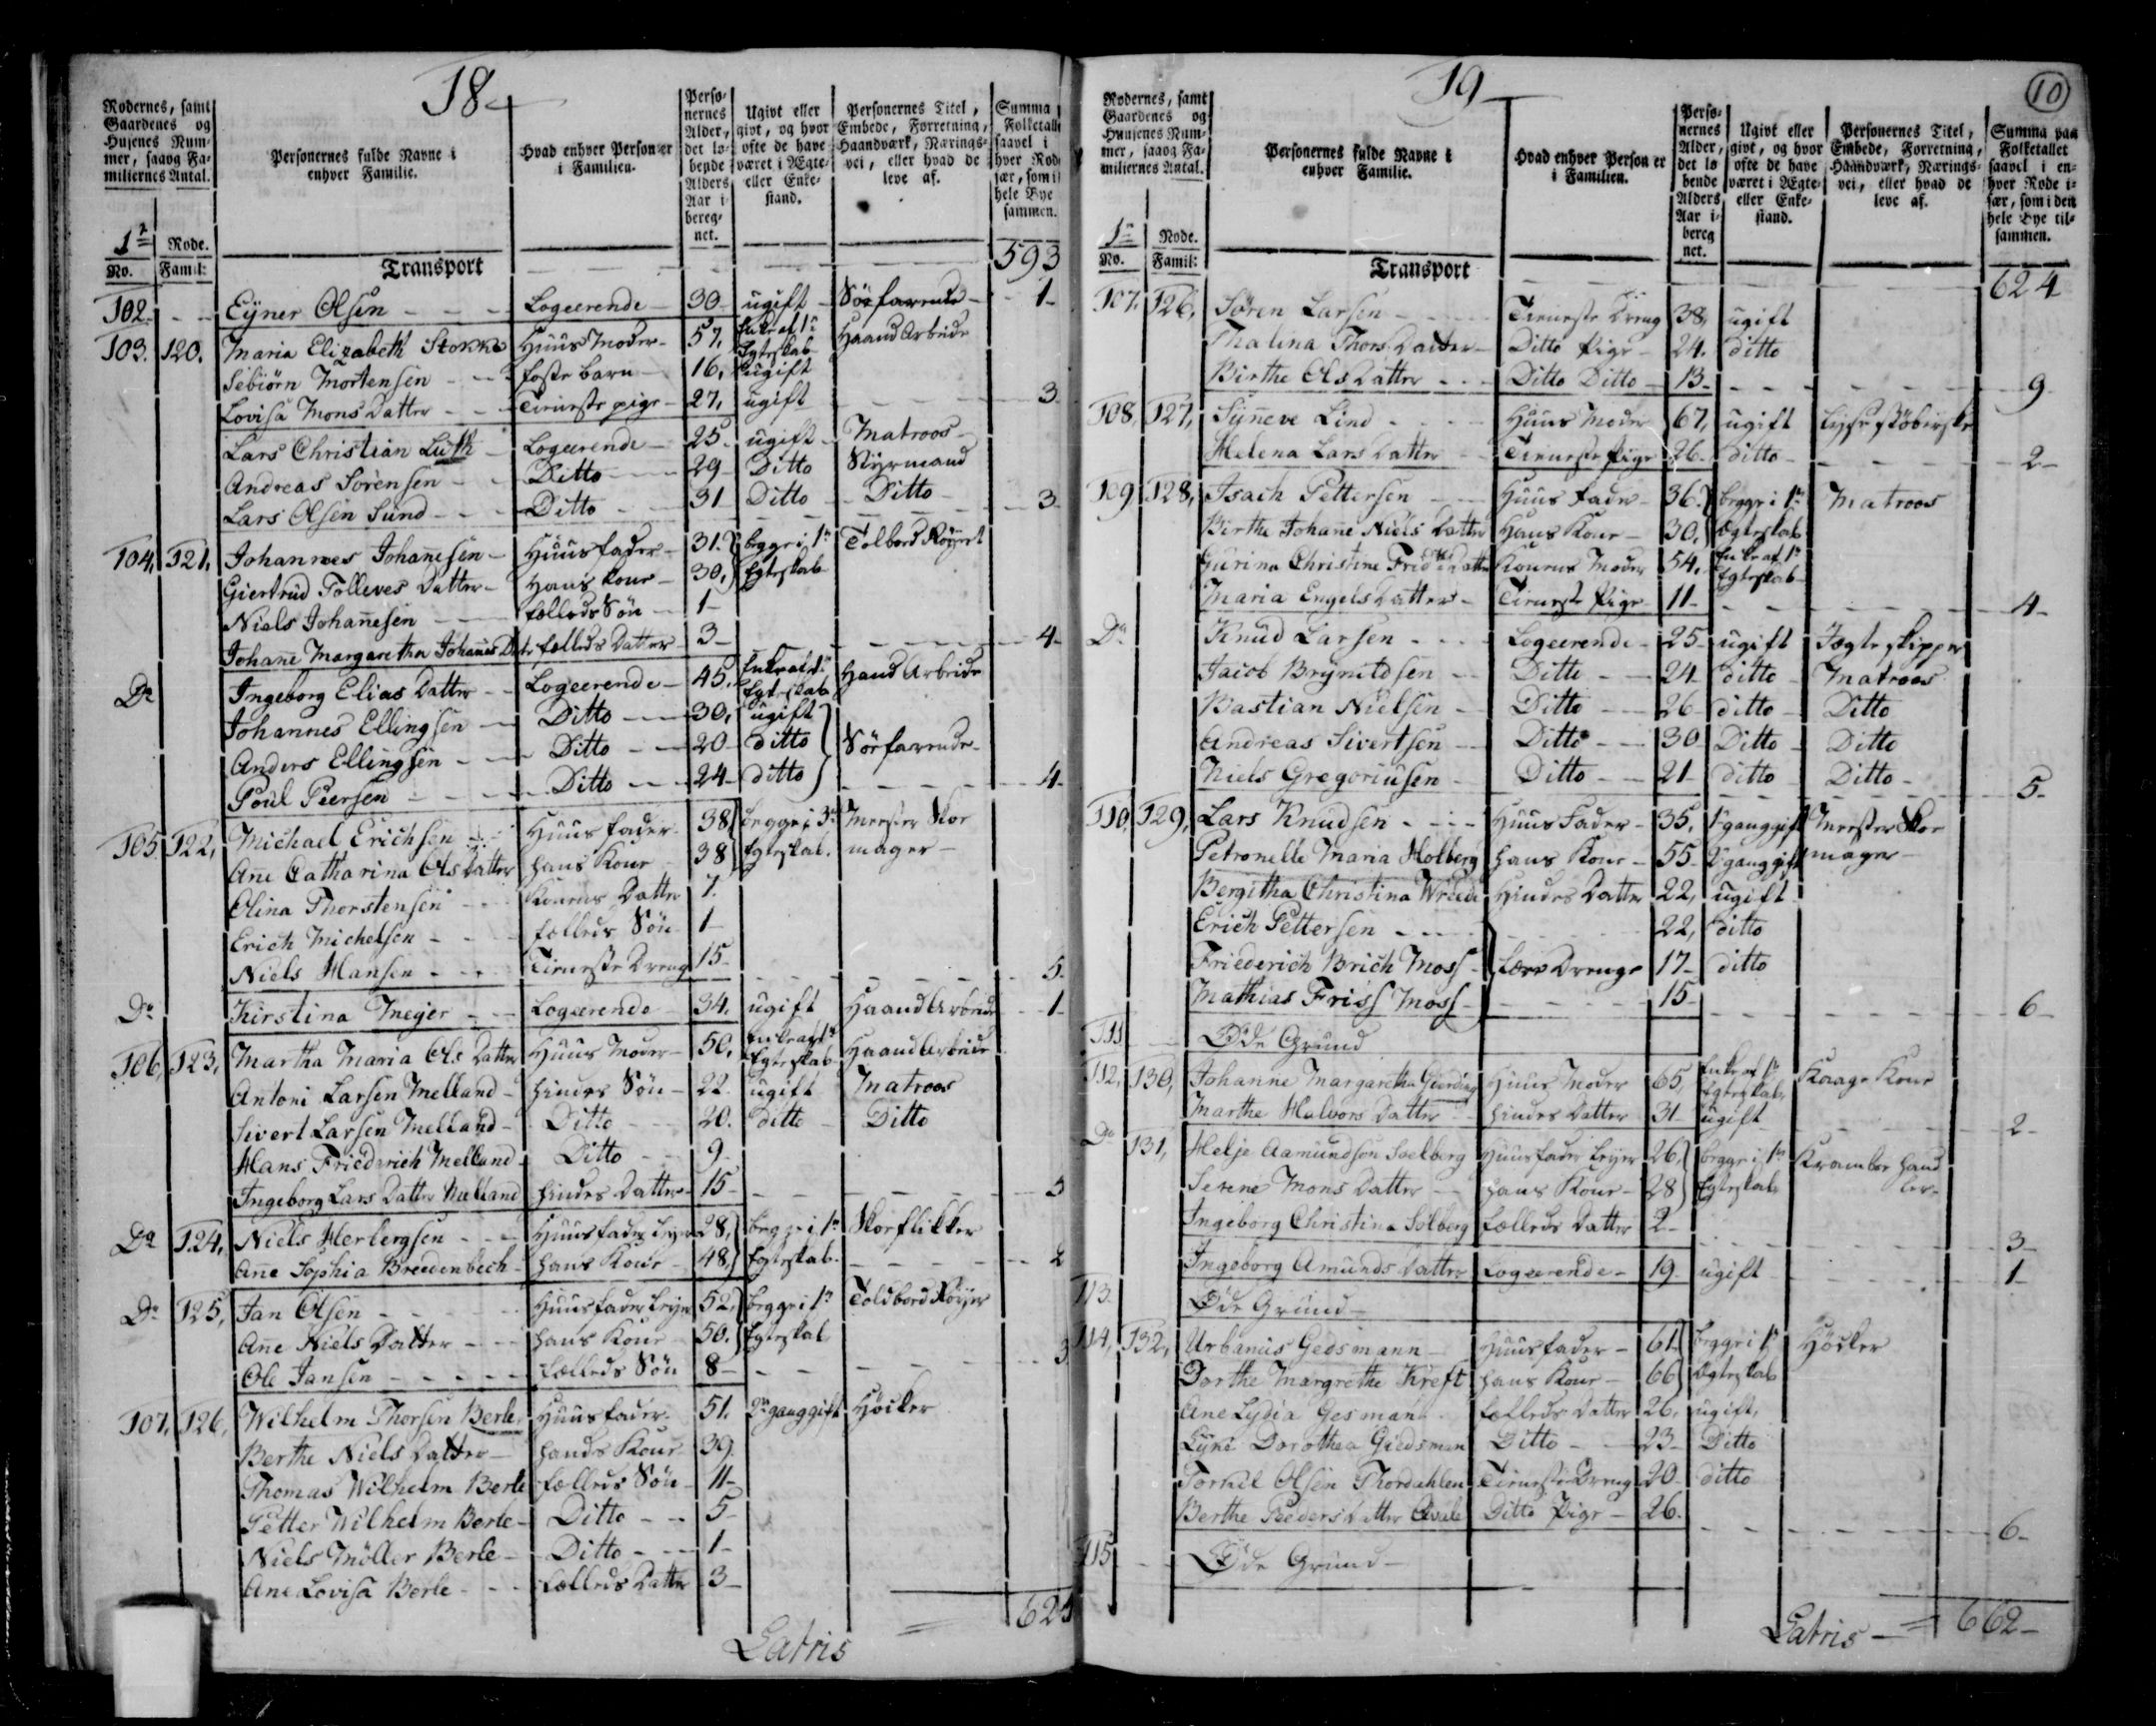 18
Rodernes, samt Gaardenes og Husenes Nummer, saavog Familiernes Antal.
Personernes fulde Navne i enhver Familie.
Hvad enhver Person er i Familien.
Personernes Alder, det løbende Alders Aar iberegnet.
Ugivt eller givt, og hvor ofte de have været i Ægte- eller Enkestand.
Personernes Titel, Embede, Forretning, Haandværk, Næringsvei, eller hvad de leve af.
Summa Folketall saavel i hver Rode sær, som i hele Bye sammen.
1te Rode.
No. Famil:
Transport 593
102. Eyner Olsen Logerende 30 ugift Söefarende 1
103. 120. Maria Elizabeth Stokke Huus Moder 57, Enke af 1te Egteskab Haand Arbeide
Sebiörn Mortensen foster barn 16, ugift
Lovisa Mons Datter Tieneste pige 27, ugift 3
Lars Christian Luth Logeerende 25 ugift Matroos
Andreas Sörensen Ditto 29 Ditto Styrmand
Lars Olsen Sund Ditto 31 Ditto Ditto 3
104, 121, Johannes Johan̄esen Huusfader 31. begge i 1te Egteskab Tolbord Röyert
Giertrud Tolleves Datter Hans Kone 30,
Niels Johan̄esen fælleds Sön 1
Johan̄e Margaretha Johan̄es Dr fælleds Datter 3 4
Do Ingeborg Elias Datter Logeerende 45. Enke af 1te Egteskab Hand Arbeide
Johannes Ellingsen Ditto 30, ugift
Anders Ellingsen Ditto 20 ditto Söefarende
Poul Peersen Ditto 24 ditto 4
105 122, Michael Erichsen Huus fader 38, begge i 3die Egteskab. Mester Skomager
Ane Catharina Ols Datter hans Kone 38
Olina Thorstensen Konens Datter 7.
Erich Michelsen fælleds Sön 1
Niels Hansen Tieneste Dreng 15 5
Do Kirstina Meyer Logeerende 34. ugift Haand Arbeide 1
106, 123, Martha Maria Ols Datter Huus Moder 50, Enke af 1te Egteskab Haand Arbeide
Antoni Larsen Melland hindes Sön 22. ugift Matroos
Sivert Larsen Melland Ditto 20. ditto Ditto
Hans Friederich Melland Ditto 9
Ingeborg Lars Datter Melland hindes Datter 15 5
Do 124, Niels Herlergsen Huusfader leyer 28, begge i 1te Egteskab Skoeflikker
An̄e Sophia Breedenbech hans Kone 48, 2
Do 125, Jan Olsen Huusfader leyer 52, begge i 1te Egteskab Toldbord Röyer
An̄e Niels Datter hans Kone 50.
Ole Jansen fælleds Sön 8 3
107, 126, Wilhelm Thorsen Berle Huus fader 51. 2den gang gift Höcker
Berthe Niels Datter hands Kone 39
Thomas Wilhelm Berle fælleds Sön 11
Petter Wilhelm Berle Ditto 5
Niels Möller Berle Ditto 1
Ane Lovisa Berle fælleds Datter 3
Latris 624
19
10
Rodernes, samt Gaardenes og Huusenes Nummer, saavog Familiernes Antal.
Personernes fulde Navne i enhver Familie.
Hvad enhver Person er i Familien.
Personernes Alder, det løbende Alders Aar iberegnet.
Ugivt eller givt, og hvor ofte de have været i Ægte- eller Enkestand.
Personernes Titel, Embede, Forretning, Haandværk, Næringsvei, eller hvad de leve af.
Summa paa Folketallet saavel i enhver Rode især, som i den hele Bye tilsammen.
1te Rode.
No. Famil:
Transport 624
107. 126. Sören Larsen Tieneste Dreng 38, ugift
Thalina Thors Datter Ditto Pige 24. ditto
Birthe Ols Datter Ditto Ditto 13 9
108, 127, Syneve Lind Huus Moder 67, ugift Lysestöberske
Helena Lars Datter Tieneste Pige 26 ditto 2
109 128, Isach Pettersen Huus fader 36. begge i 1te Ægteskab Matroos
Birthe Johan̄e Niels Datter Hans Kone 30,
Gurina Christine Fridds Datter Konens Moder 54. Enke af 1te Egteskab
Maria Engels Datter Tieneste Pige 11 4
Do Knud Larsen Logeerende 25 ugift Jægteskipper
Jacob Brynildsen Ditto 24 ditto Matroos
Bastian Nielsen Ditto 26 ditto Ditto
Andreas Sivertsen Ditto 30 Ditto Ditto
Niels Gregoriusen Ditto 21 ditto Ditto 5
110, 129, Lars Knudsen Huus Fader 35. 1te gang gift Mester Skomager
Petronelle Maria Holberg hans Kone 55 2den gang gift
Bergitha Christina Wreede Hindes Datter 22, ugift
Erich Pettersen 22, ditto
Friederich Brich Moss Lære Drenge 17 ditto
Mathias Friss Moss 15 6
111 Øde Grund
112, 130, Johanne Margaretha Gierding Huus Moder 65, Enke af 1te Egteskab Kaage Kone
Marthe Halvors Datter hindes Datter 31 ugift 2
Do 131, Helje Aamundsen Soelberg Huusfader leyer 26, begge i 1te Egteskab Kramboe handler
Serene Mons Datter hans Kone 28
Ingeborg Christina Solberg fælleds Datter 2 3
Ingeborg Amunds Datter Logeerende 19 ugift 1
113. Øde Grund
114, 132, Urbanus Gedsmann Huusfader 61 begge i 1te Ægteskab Höcker
Dorthe Margrethe Kreft hans Kone 66
Ane Lydia Gesman fælleds Datter 26, ugift,
Lyne Dorothea Giedsman Ditto 23 Ditto
Torkil Olsen Thordahlen Tieneste Dreng 20 ditto
Berthe Peeders Datter Ditto Pige 26. 6
115 Øde Grund
Latris 662